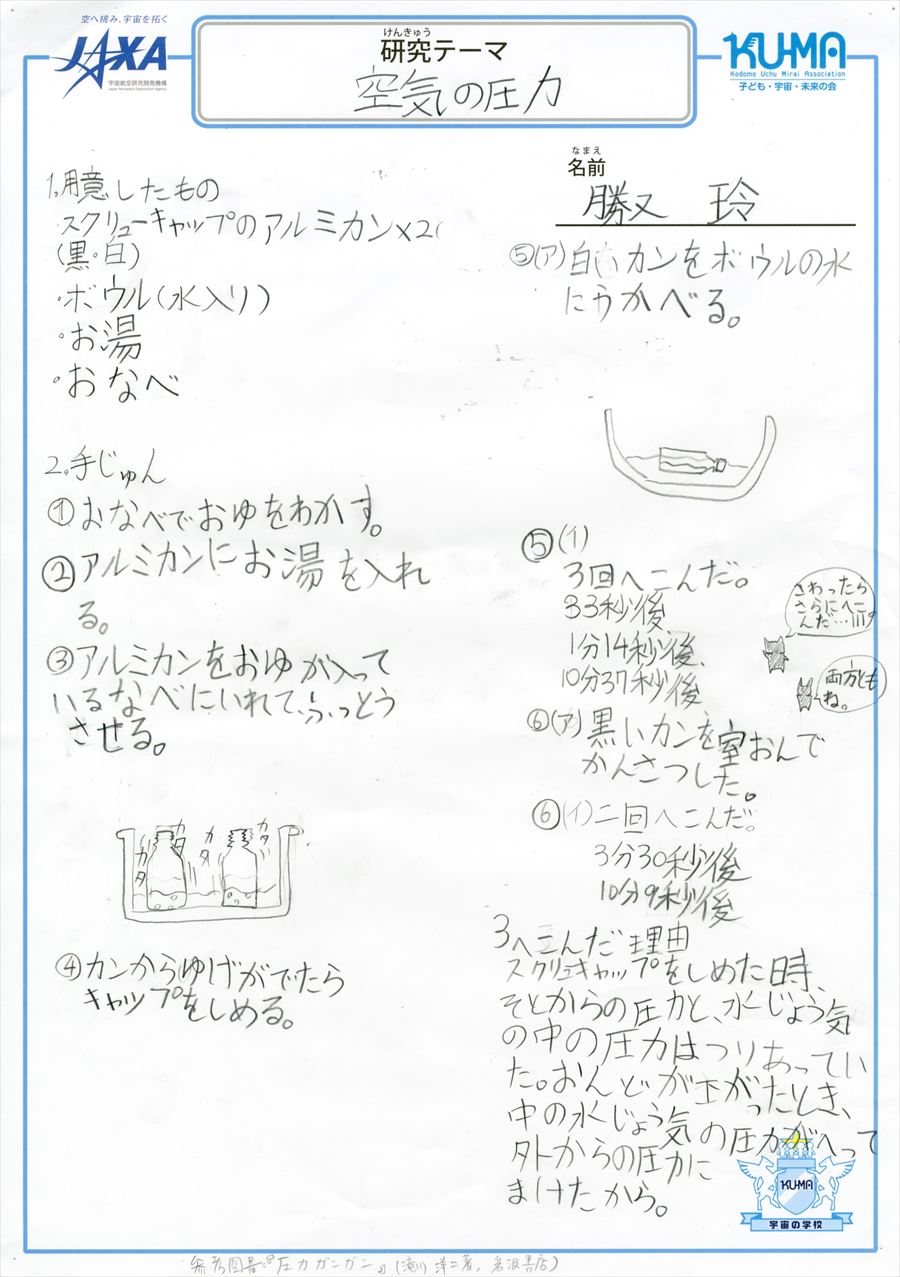 空へ挑み、宇宙を拓く
JAXA
宇宙航空研究開発機構
Japan Aerospace Exploration Agency
けんきゅう
研究テーマ
空気の圧力
KU-MA
Kodomo Uchu Mirai Association
子ども・宇宙・未来の会
なまえ
名前
勝又 玲
1.用意したもの
・スクリューキャップのアルミカン×2(
(黒・白)
・ボウル(水入り)
・お湯
・おなべ
2.手じゅん
①おなべでおゆをわかす。
②アルミカンにお湯を入れ
る。
③アルミカンをおゆが入って
いるなべにいれて、ふっとう
させる。
カタ
カタ
カタ
カタ
④カンからゆげがでたら
キャップをしめる。
⑤(ア)白カンをボウルの水
にうかべる。
⑤(イ)
3回へこんだ。
33秒後
1分14秒後、
10分37秒後、
さわったら
さらにへこ
んだ…!!!。
両方とも
ね。
⑥(ア)黒いカンを室おんで
かんさつした。
⑥(イ)二回へこんだ。
3分30秒後
10分9秒後
3へこんだ理由
スクリュキャップをしめた時、
そとからの圧力と、水じょう気
の中の圧力はつりあってい
た。おんどが下がったとき、
中の水じょう気の圧力がへって
外からの圧力に
まけたから。
KU-MA
宇宙の学校
参考図書:『圧力ガンガン』(滝川 洋二著,岩波書店)